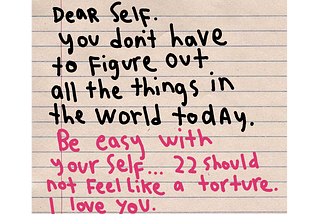 DEAR SELF.
you don't have
to Figure out
all the things in
the World today.
Be easy with
your self... 22 should
not Feel Like a torture.
I love you.